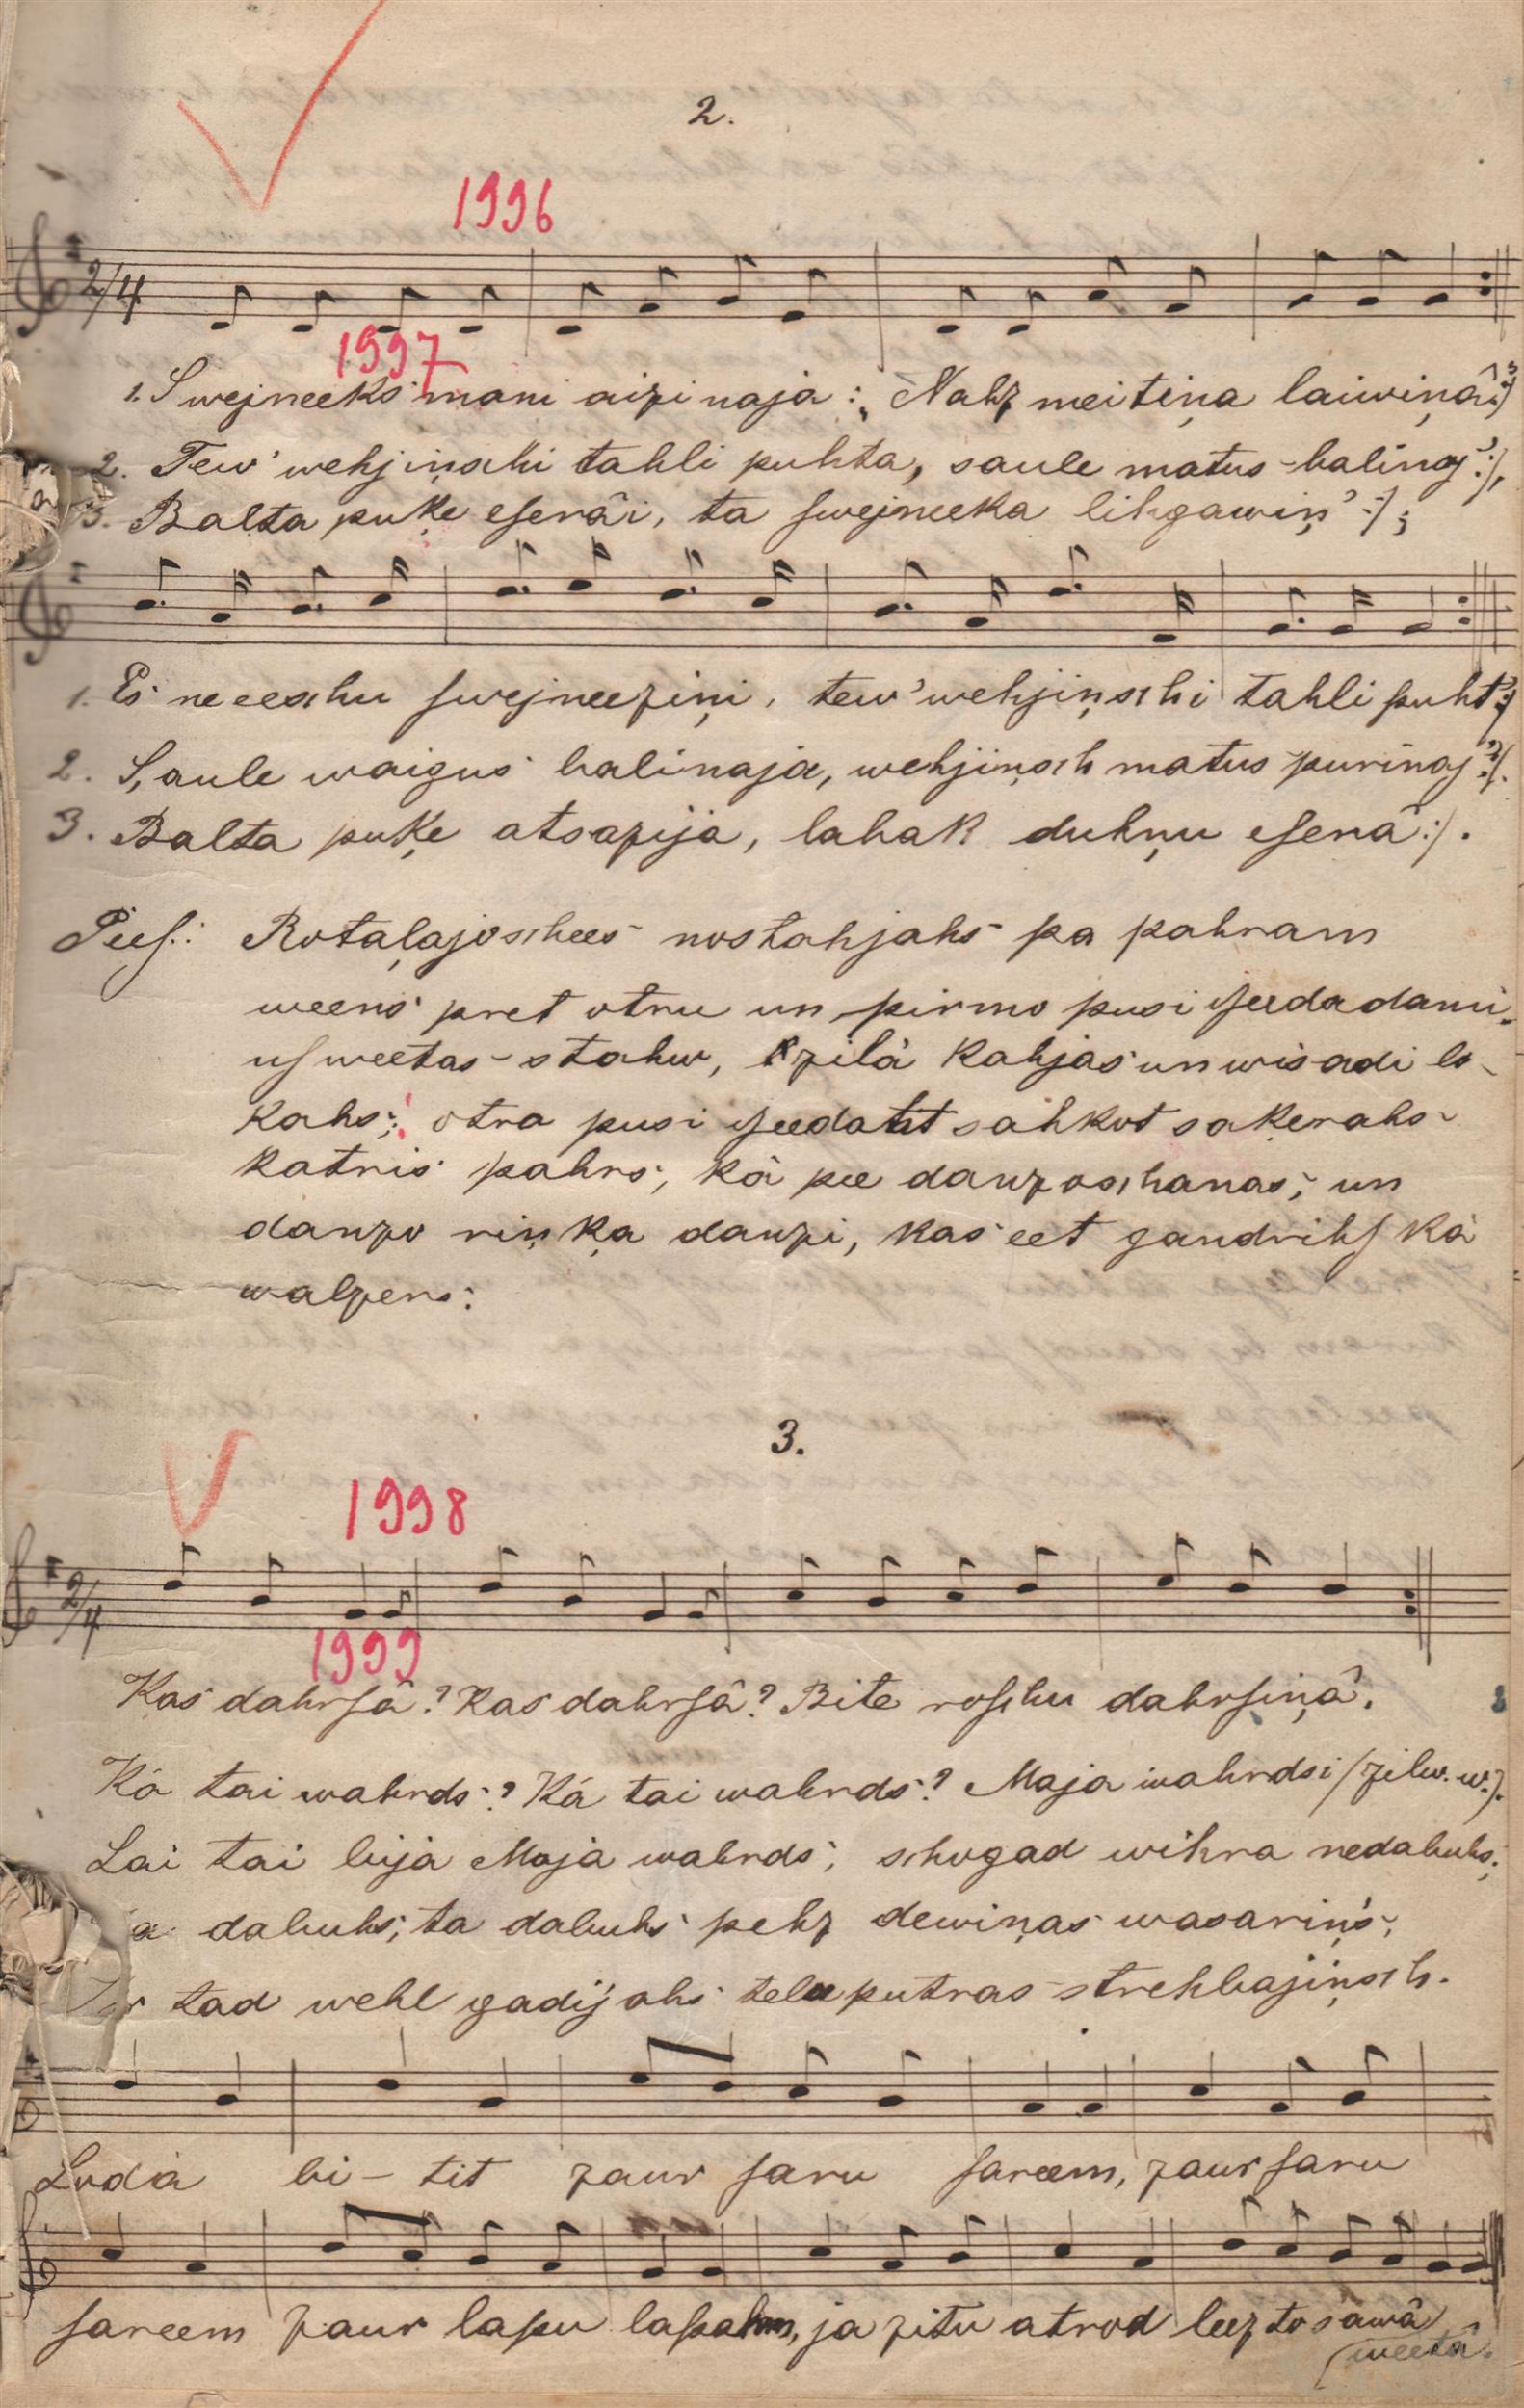 2.
1996
2/4
1997
1. Swejneeks mani aizinaja :, Nahz meitiņa laiwiņâ :)
2. Tew' wehjiņschi tahli puhta, saule matus balinaj' :),
3. Balta puķe eserâi, ta swejneeka lihgawiņ' :);
1. Es neeeschu swejneeziņi, tew' wehjiņschi tahli puht' :)
2. Saule waigus balinaja, wehjiņsch matus purinaj' :).
3. Balta puķe atsazija, labak duhņu eserâ :).
Pees.: Rotaļajoschees nostahjahs pa pahram
weens pret otru un pirmo pusi dseedadami
us weetas stahw, zilâ kahjas un wisadi lo-
kahs; otra pusi dseedaht sahkot saķerahs
katris pahrs, kâ pee danzoschanas, un
danzo riņķa danzi, kas eet gandrihs kâ
walzers.
3.
1998
2/4
1999
Kas dahrsâ? Kas dahrsâ? Bite roschu dahrsiņâ.
Kâ tai wahrds? Kâ tai wahrds? Maja wahrdsi (zilw. w.).
Lai tai bija Maja wahrds, schogad wihra nedabuhs,
dabuhs, ta dabuhs pehz dewiņas wasariņs,
tad wehl gadijahs teļa putras strehbajiņsch.
Loda bi - tit zaur saru sareem, zaur saru
sareem zaur lapu lapahm, ja zitu atrod leez to sawâ
weetâ.